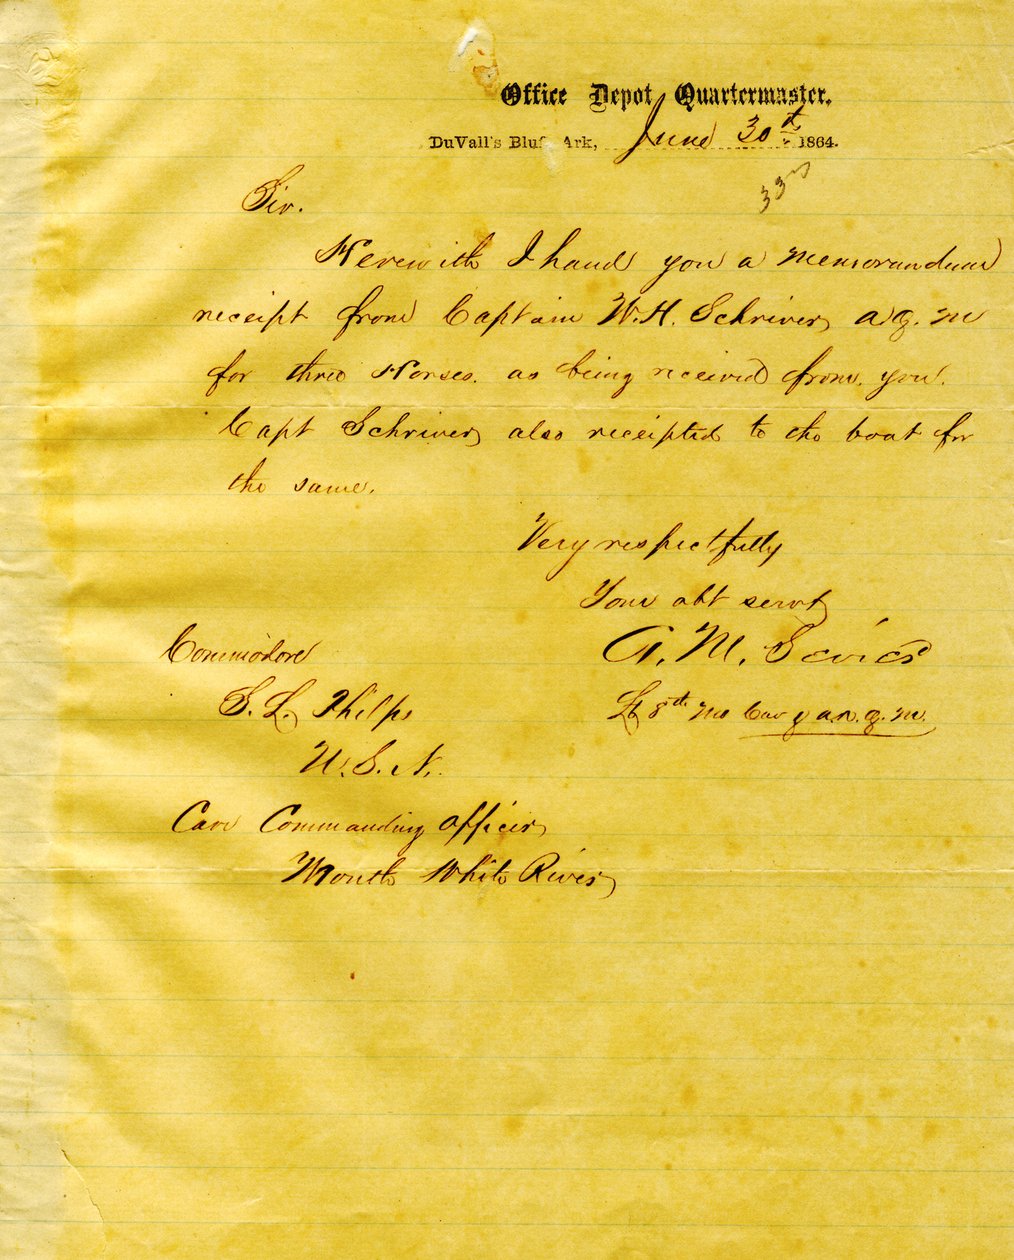 Office Depot Quartermaster,
DuVall's Bluff Ark, June 30th 1864.
33
Sir.
Herewith I hand you a memorandum
receipt from Captain W. H. Schriver, a. q. m
for three Horses. as being received from. you.
Capt Schriver also receipted to the boat for
the same.
Very respectfully
Your obt servt
A. M.
Lt 8th Mo Cav & a. a. q. m.
Commodore
S. L. Phelps
U. S. N.
Care Commanding officer,
Mouth White River,